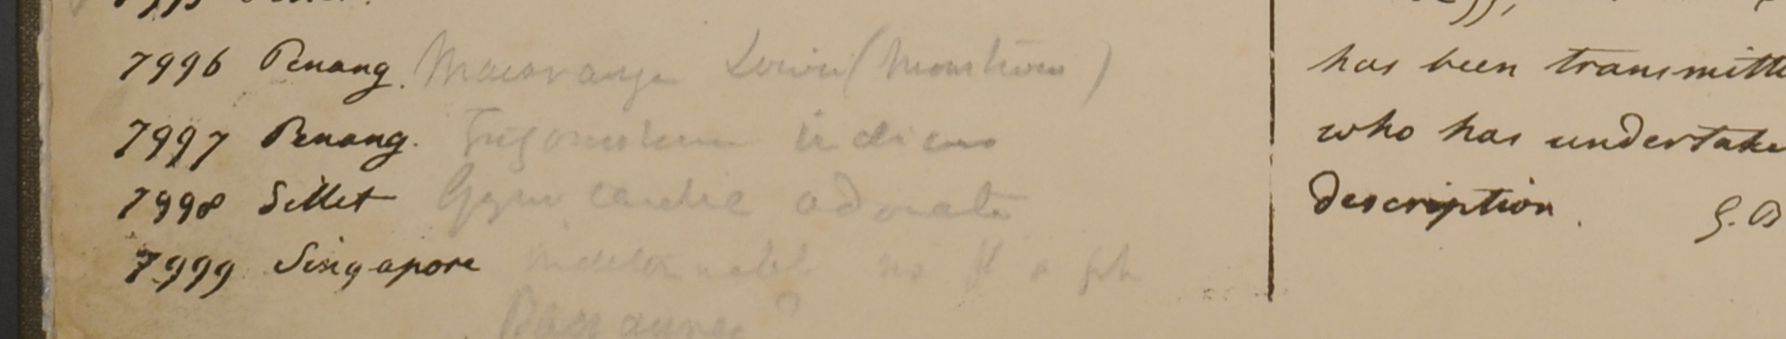 7996 Penang. Macaranga Lowii
7997 Penang. Trigonostemon indicus
7998 Sillet Gynocardia odorata
7999 Singapore no fl or fr
has been transmitte
who has undertake
description. G.B